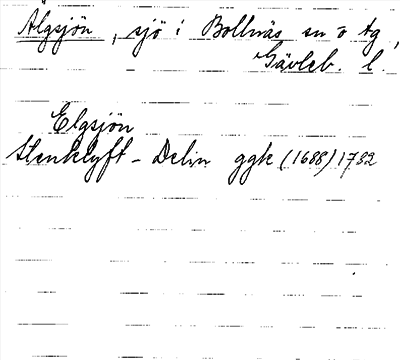 Älgsjön, sjö i Bollnäs sn o tg,
Gävleb. l.
Elgsjön
Stenklyft - Delin ggk (1688) 1782